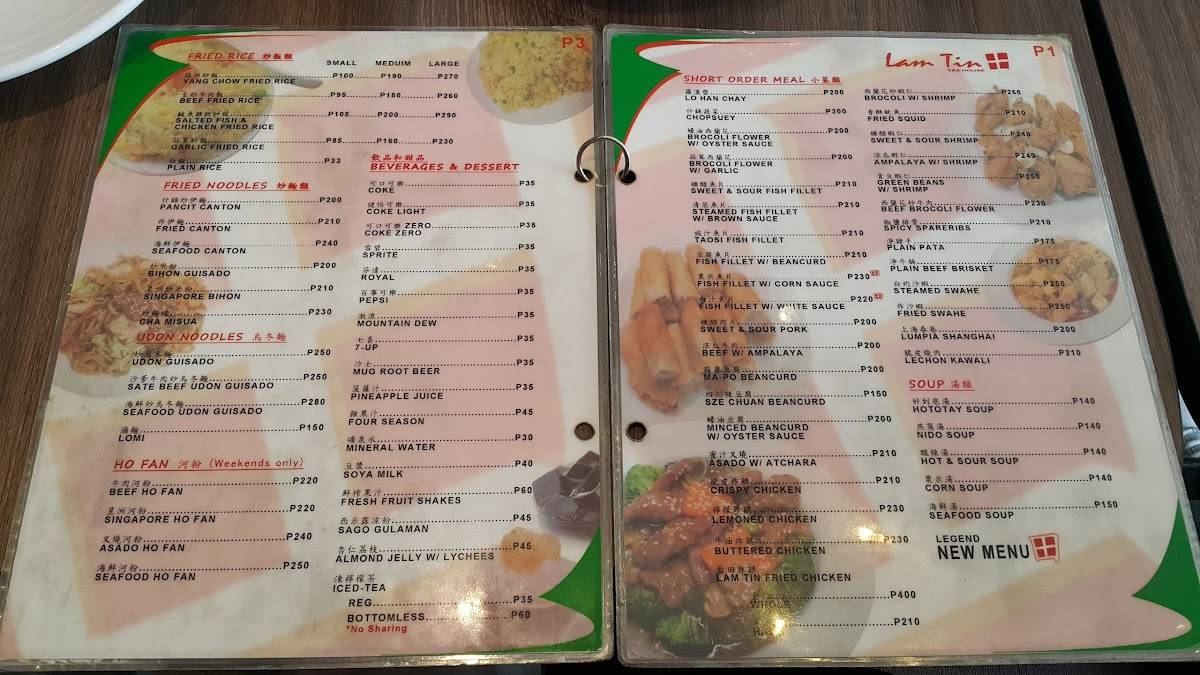 P3
FRIED RICE 炒飯類
SMALL MEDUIM LARGE
揚州炒飯
YANG CHOW FRIED RICE P100 P190 P270
生炒牛肉飯
BEEF FRIED RICE P95 P180 P260
鹹魚雞粒炒飯
SALTED FISH &
CHICKEN FRIED RICE P105 P200 P290
蒜茸炒飯
GARLIC FRIED RICE P85 P160 P230
白飯
PLAIN RICE P33
FRIED NOODLES 炒麵類
什錦炒伊麵
PANCIT CANTON P200
炸伊麵
FRIED CANTON P210
海鮮伊麵
SEAFOOD CANTON P240
炒米粉
BIHON GUISADO P200
星洲炒米粉
SINGAPORE BIHON P210
炒麵線
CHA MISUA P230
UDON NOODLES 烏冬麵
炒烏冬麵
UDON GUISADO P250
沙爹牛肉炒烏冬麵
SATE BEEF UDON GUISADO P250
海鮮炒烏冬麵
SEAFOOD UDON GUISADO P280
滷麵
LOMI P150
HO FAN 河粉 (Weekends only)
牛肉河粉
BEEF HO FAN P220
星洲河粉
SINGAPORE HO FAN P220
叉燒河粉
ASADO HO FAN P240
海鮮河粉
SEAFOOD HO FAN P250
飲品和甜品
BEVERAGES & DESSERT
可口可樂
COKE P35
健怡可樂
COKE LIGHT P35
可口可樂 ZERO
COKE ZERO P35
雪碧
SPRITE P35
芬達
ROYAL P35
百事可樂
PEPSI P35
激浪
MOUNTAIN DEW P35
七喜
7-UP P35
沙士
MUG ROOT BEER P35
菠蘿汁
PINEAPPLE JUICE P35
雜果汁
FOUR SEASON P45
礦泉水
MINERAL WATER P30
豆漿
SOYA MILK P40
鮮榨果汁
FRESH FRUIT SHAKES P60
西米露涼粉
SAGO GULAMAN P45
杏仁荔枝
ALMOND JELLY W/ LYCHEES P45
凍檸檬茶
ICED-TEA
REG P35
BOTTOMLESS P60
*No Sharing
Lam Tin
TEA HOUSE
P1
SHORT ORDER MEAL 小菜類
羅漢齋
LO HAN CHAY P200
什錦蔬菜
CHOPSUEY P200
蠔油西蘭花
BROCOLI FLOWER
W/ OYSTER SAUCE P200
蒜茸西蘭花
BROCOLI FLOWER
W/ GARLIC P200
糖醋魚片
SWEET & SOUR FISH FILLET P210
清蒸魚片
STEAMED FISH FILLET
W/ BROWN SAUCE P210
豉汁魚片
TAOSI FISH FILLET P210
豆腐魚片
FISH FILLET W/ BEANCURD P210
粟米魚片
FISH FILLET W/ CORN SAUCE P230
白汁魚片
FISH FILLET W/ WHITE SAUCE P220
糖醋肉片
SWEET & SOUR PORK P200
涼瓜牛肉
BEEF W/ AMPALAYA P200
麻婆豆腐
MA-PO BEANCURD P200
四川辣豆腐
SZE CHUAN BEANCURD P150
蠔油豆腐
MINCED BEANCURD
W/ OYSTER SAUCE P200
蜜汁叉燒
ASADO W/ ATCHARA P210
脆皮炸雞
CRISPY CHICKEN P210
檸檬炸雞
LEMONED CHICKEN P210
牛油炸雞
BUTTERED CHICKEN P230
藍田炸雞
LAM TIN FRIED CHICKEN
WHOLE P400
P210
西蘭花炒蝦仁
BROCOLI W/ SHRIMP P260
香酥魷魚
FRIED SQUID P210
糖醋蝦仁
SWEET & SOUR SHRIMP P240
涼瓜蝦仁
AMPALAYA W/ SHRIMP P240
青豆蝦仁
GREEN BEANS
W/ SHRIMP P250
西蘭花炒牛肉
BEEF BROCOLI FLOWER P230
椒鹽排骨
SPICY SPARERIBS P210
淨豬手
PLAIN PATA P175
淨牛腩
PLAIN BEEF BRISKET P175
白灼沙蝦
STEAMED SWAHE P250
炸沙蝦
FRIED SWAHE P250
上海春卷
LUMPIA SHANGHAI P200
脆皮燒肉
LECHON KAWALI P210
SOUP 湯類
好到底湯
HOTOTAY SOUP P140
燕窩湯
NIDO SOUP P140
酸辣湯
HOT & SOUR SOUP P140
粟米湯
CORN SOUP P140
海鮮湯
SEAFOOD SOUP P150
LEGEND
NEW MENU